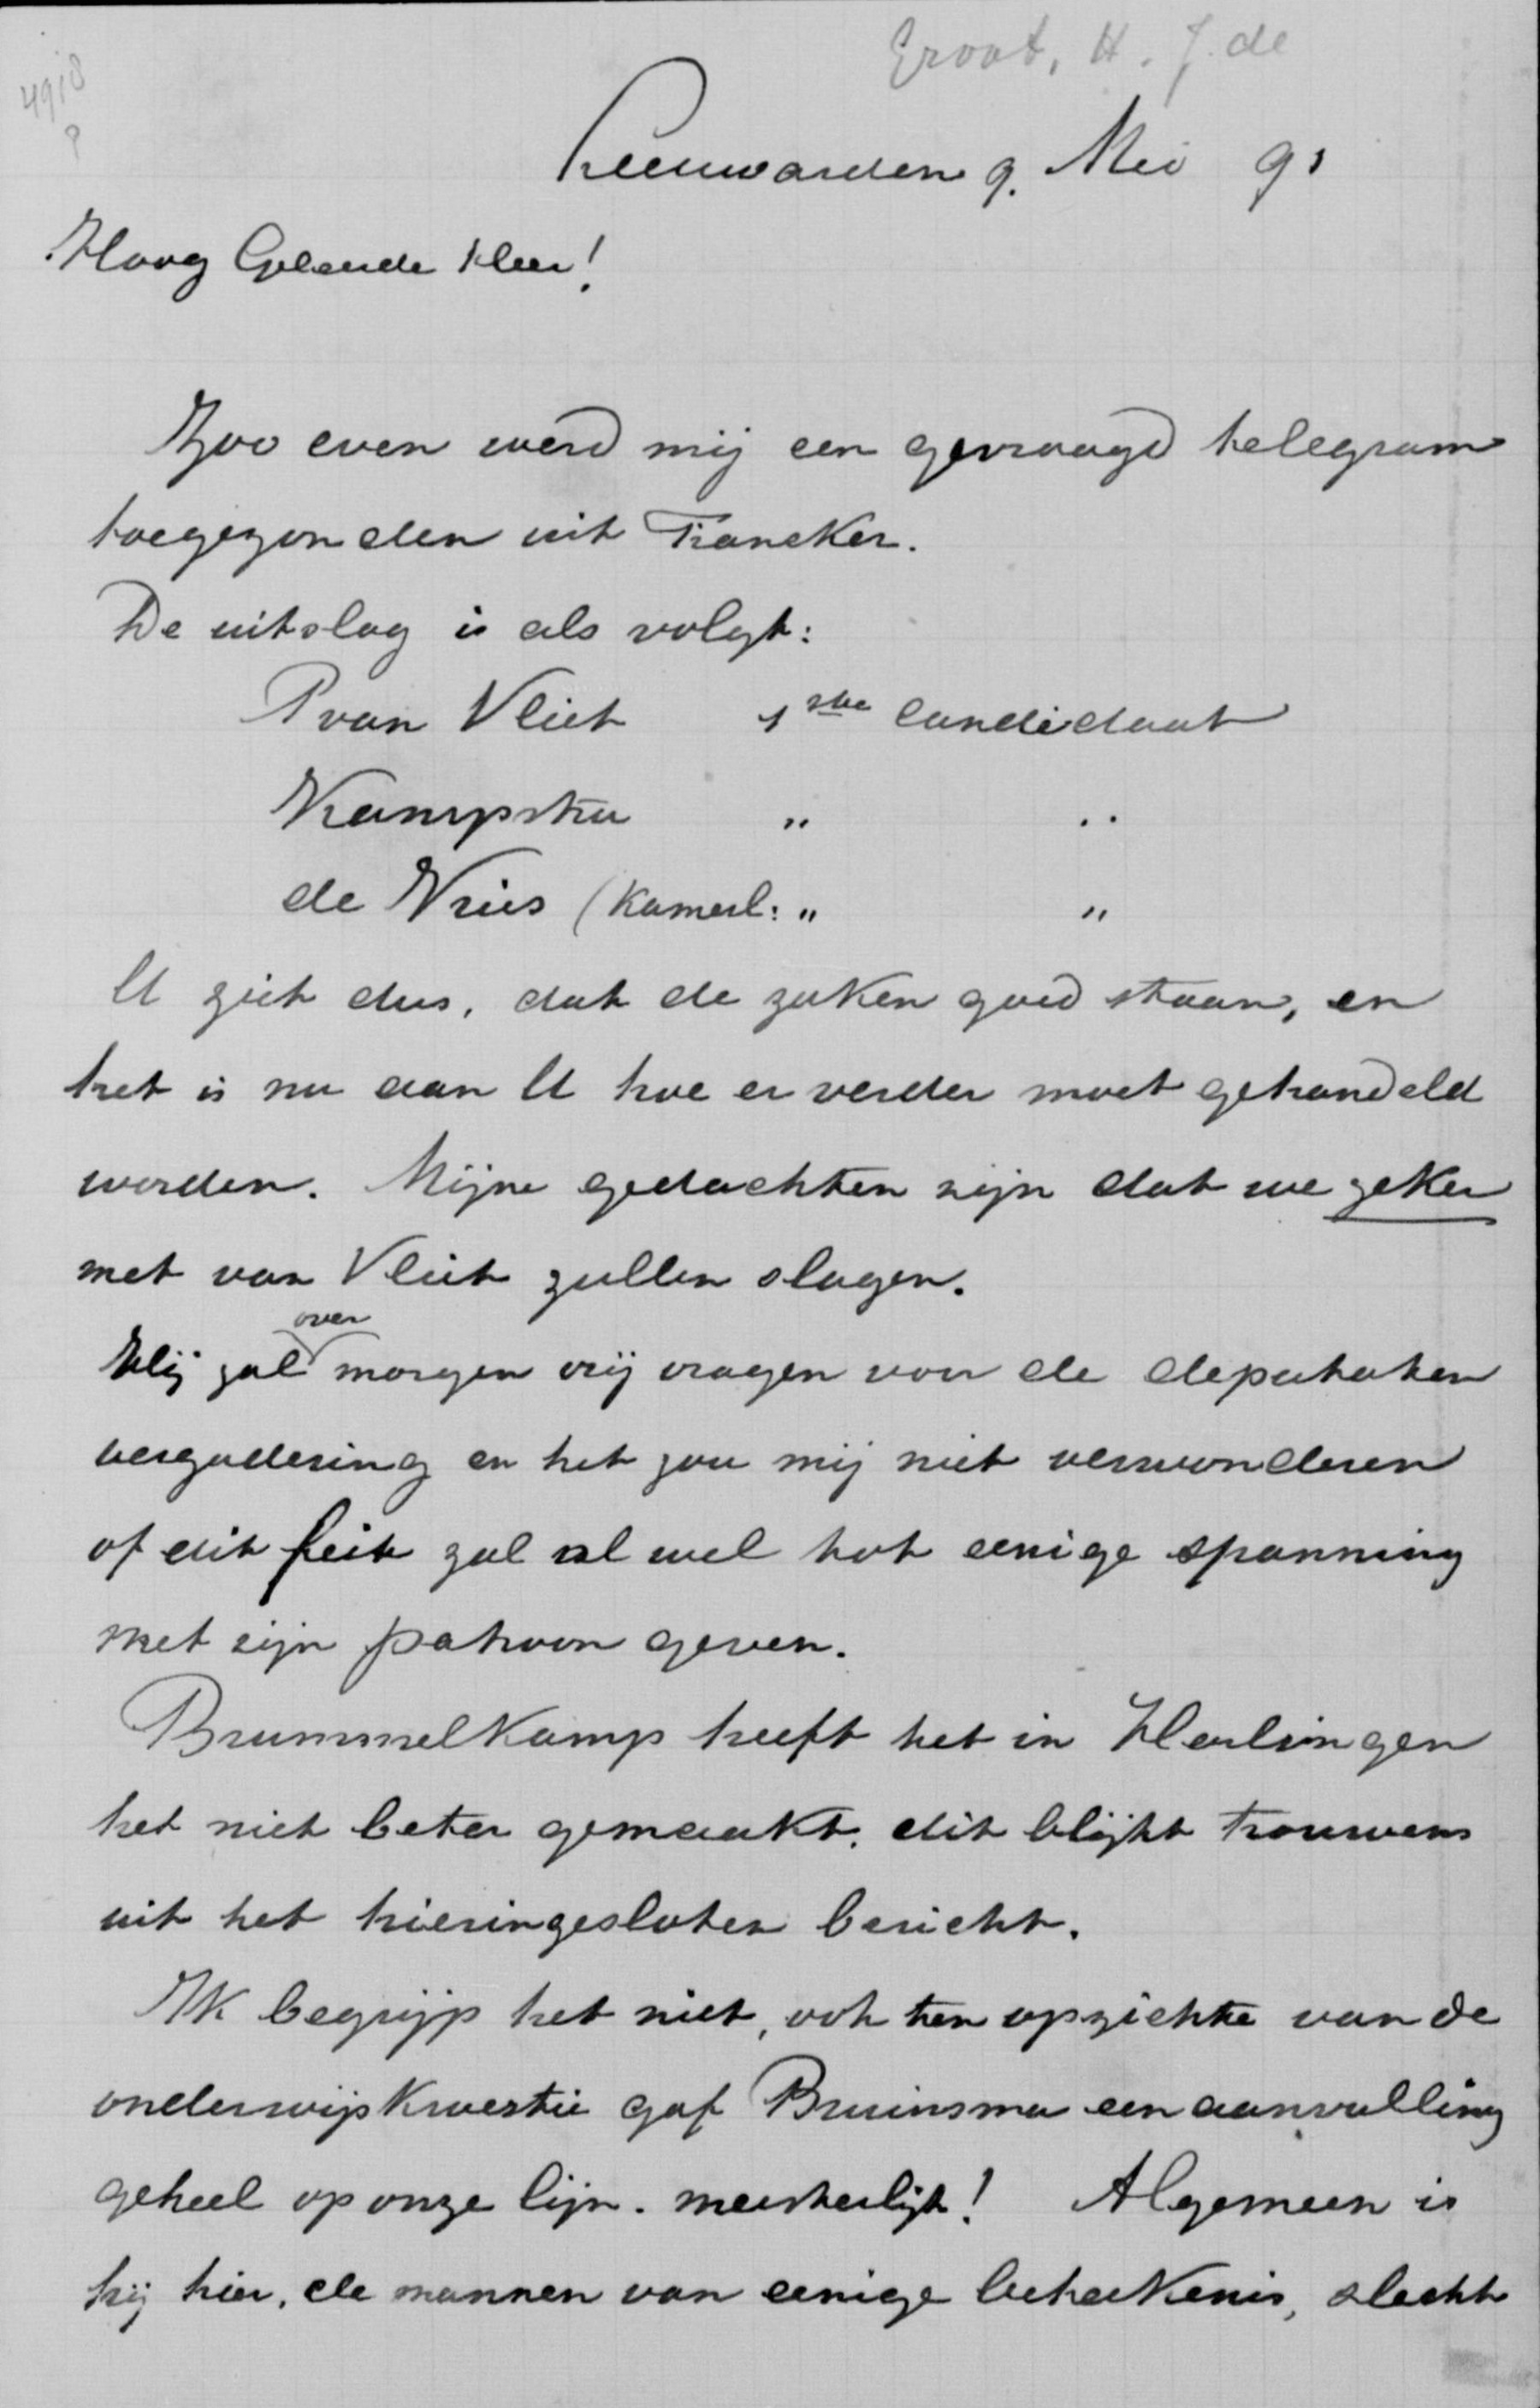 Groot, H. J. de
4918
?
Leeuwarden 9. Mei 91
Hoog Geleerde Heer!
Zoo even werd mij een gevraagd telegram
toegezonden uit Franeker.
De uitslag is als volgt:
P van Vliet 1ste candidaat
Kampstra " "
de Vries (Kamerl: " "
U ziet dus, dat de zaken goed staan, en
het is nu aan U hoe er verder moet gehandeld
worden. Mijne gedachten zijn dat we zeker
met van Vliet zullen slagen.
over
Hij zal morgen vrij vragen voor de deputaten
vergadering en het zou mij niet verwonderen
of dit feit zal al wel tot eenige spanning
met zijn patroon geven.
Brummelkamp heeft het in Harlingen
het niet beter gemaakt. dit blijkt trouwens
uit het hieringesloten bericht.
Ik begrijp het niet, ook ten opzichte van de
onderwijskwestie gaf Bruinsma een aanvulling
geheel op onze lijn. meesterlijk! Algemeen is
hij hier, de mannen van eenige beteekenis, slecht